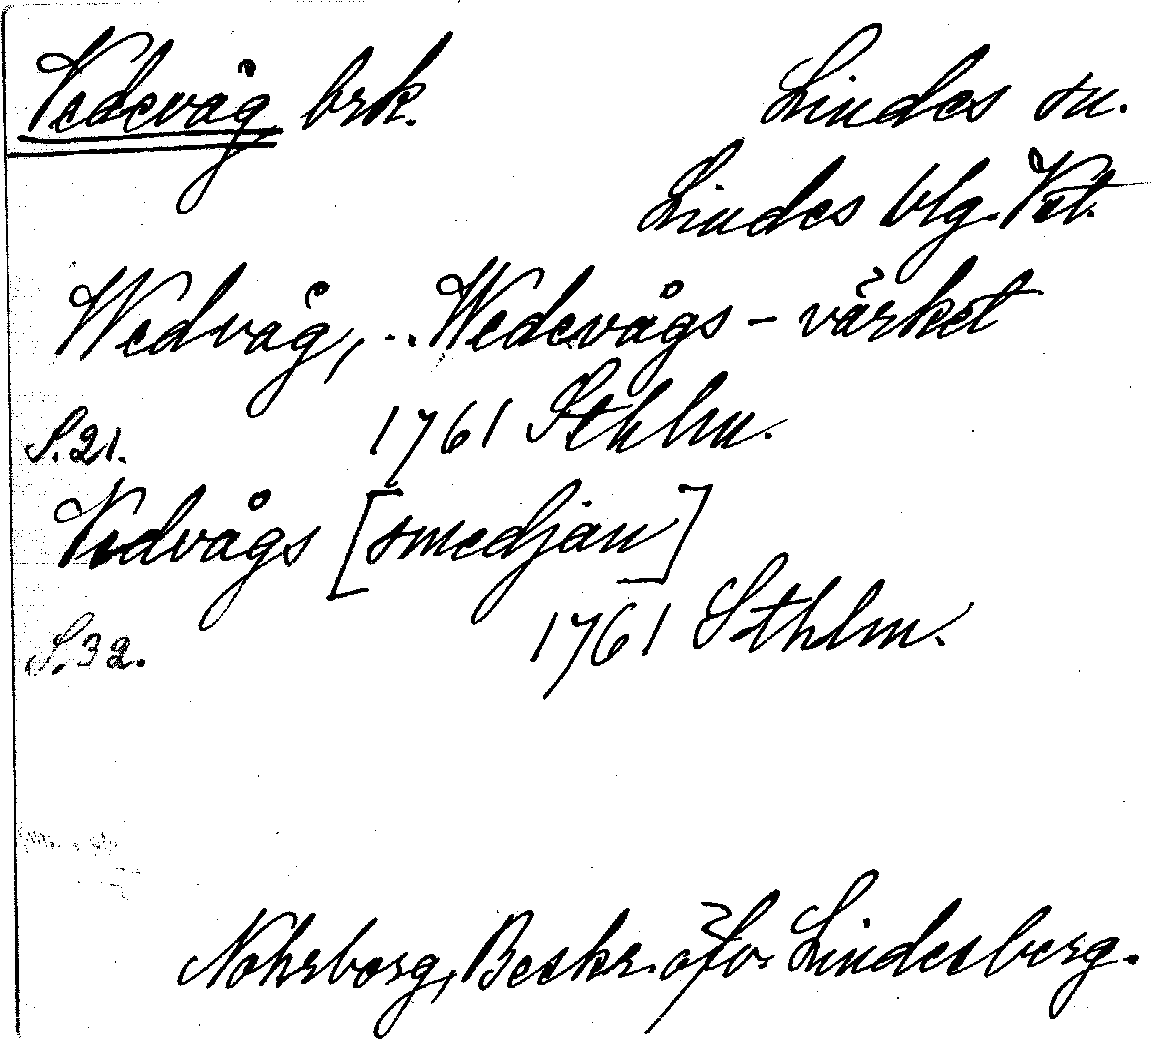 Vedevåg brk. Lindes sn.
Lindes blg. Vstl.
Wedvåg, .. Wedevågs - värket
S. 21. 1761 Sthlm.
Vedvågs [smedjan]
S. 32. 1761 Sthlm.
Nohrborg, Beskr. öfv. Lindesberg.